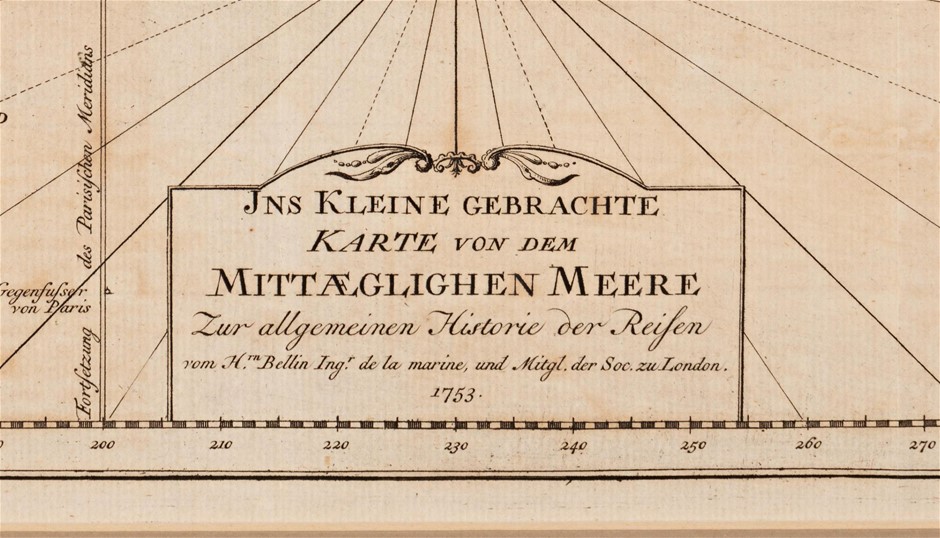 JNS KLEINE GEBRACHTE
KARTE VON DEM
MITTÆGLIGHEN MEERE
Zur allgemeinen Historie der Reisen
vom H.rn Bellin Ing.r de la marine, und Mitgl. der Soc. zu London.
1753.
Fortsetzung des Parisischen Meridians
Gegenfusser
von Paris
200 210 220 230 240 250 260 270